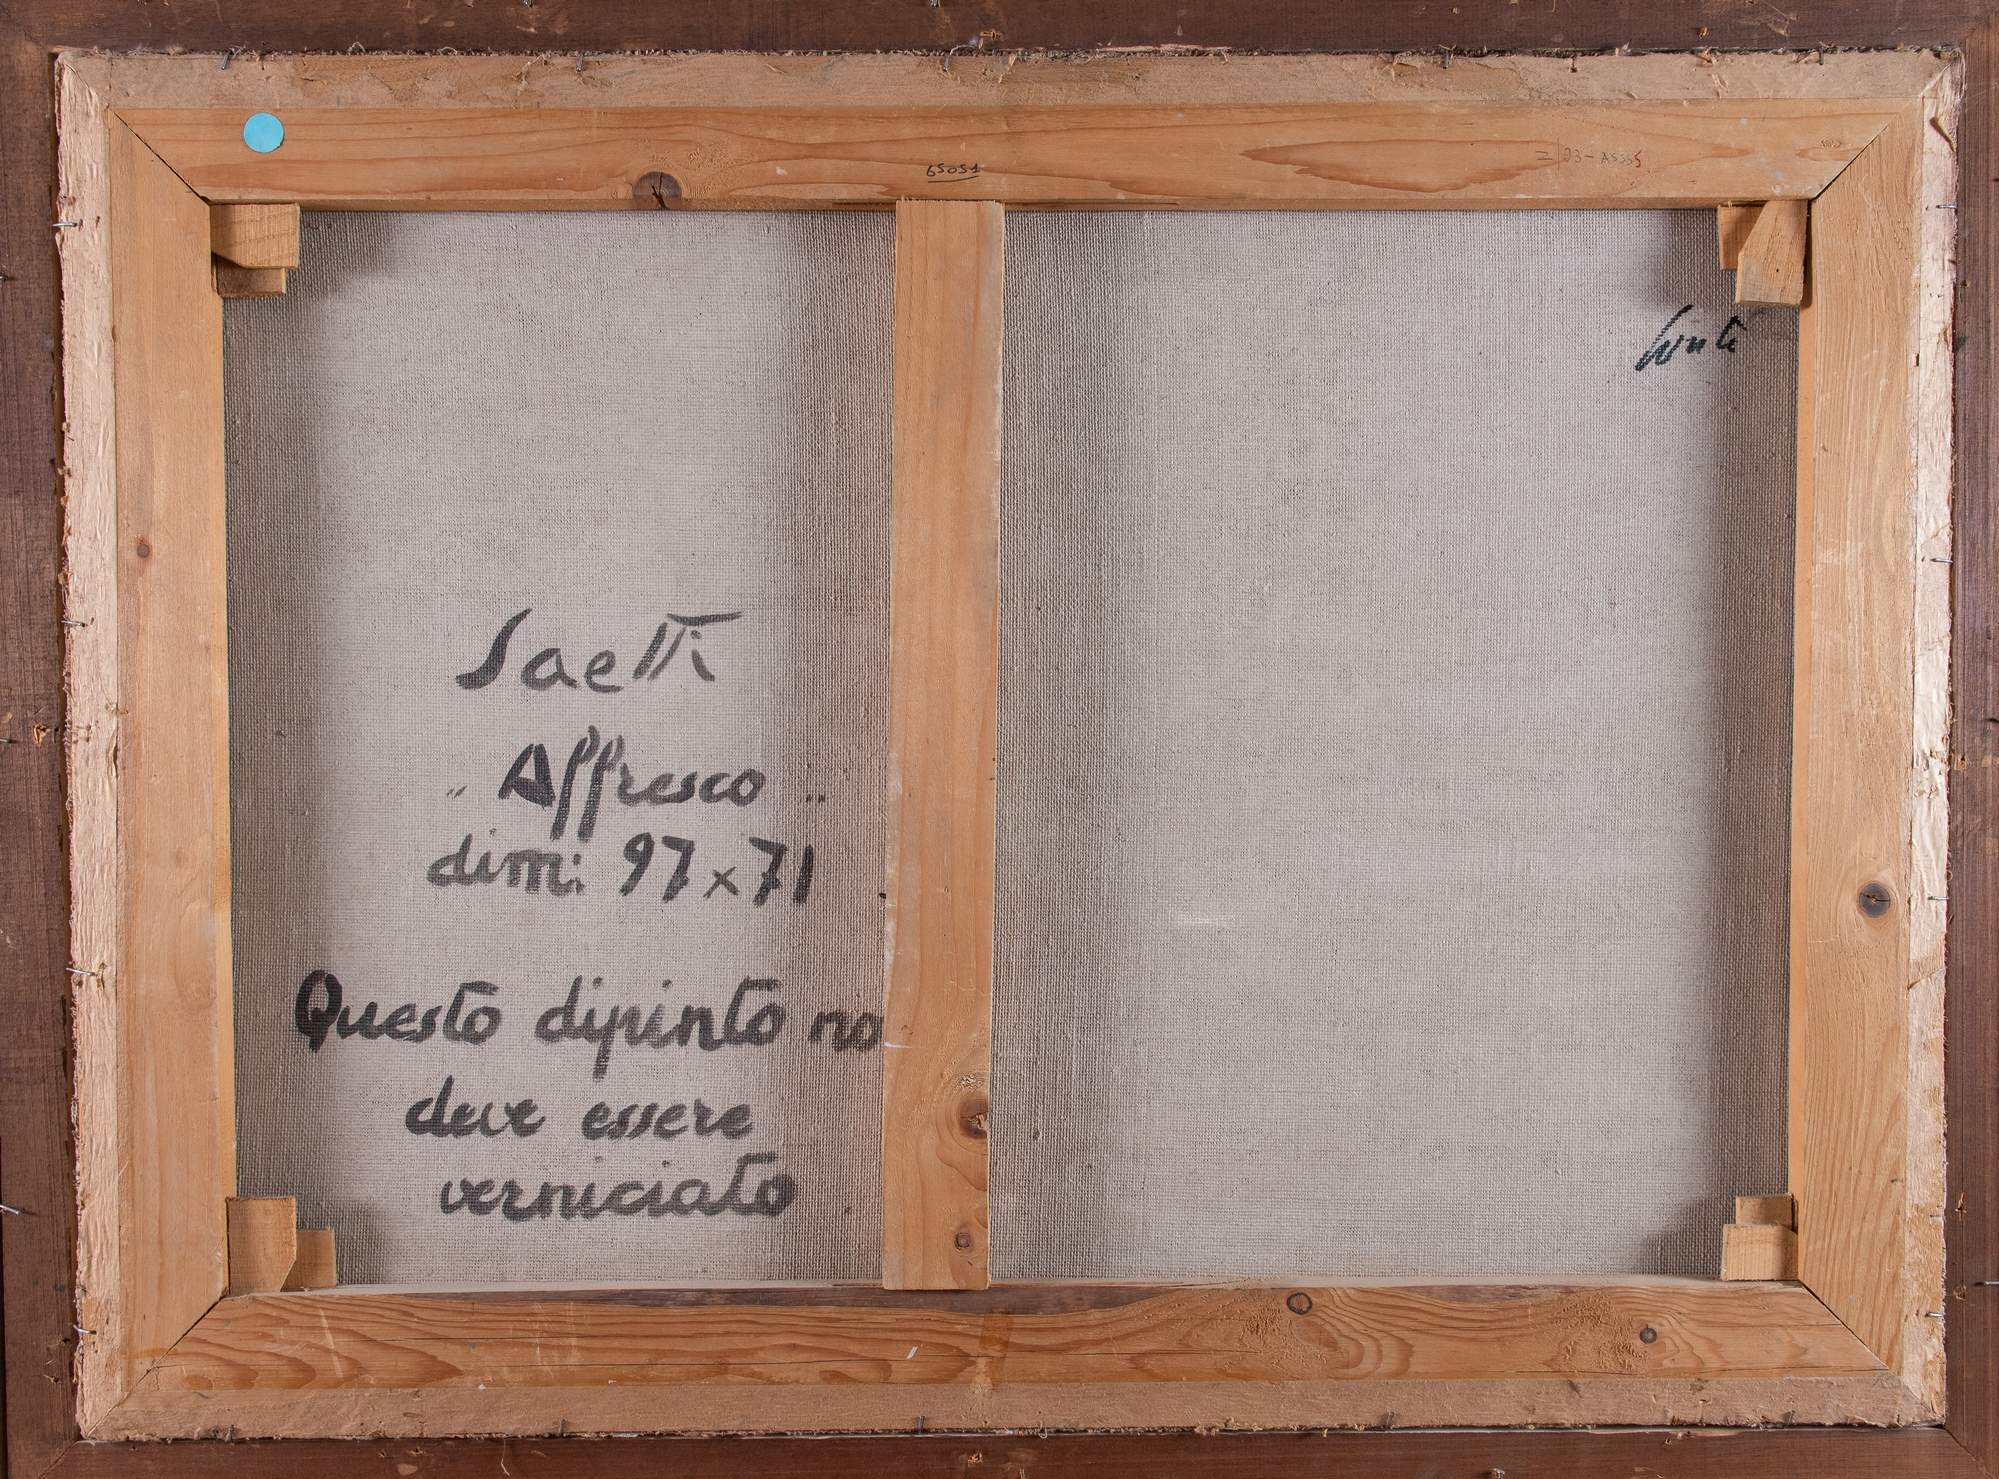 65051
Saetti
" Affresco "
dim: 97 x 71
Questo dipinto no
deve essere
verniciato